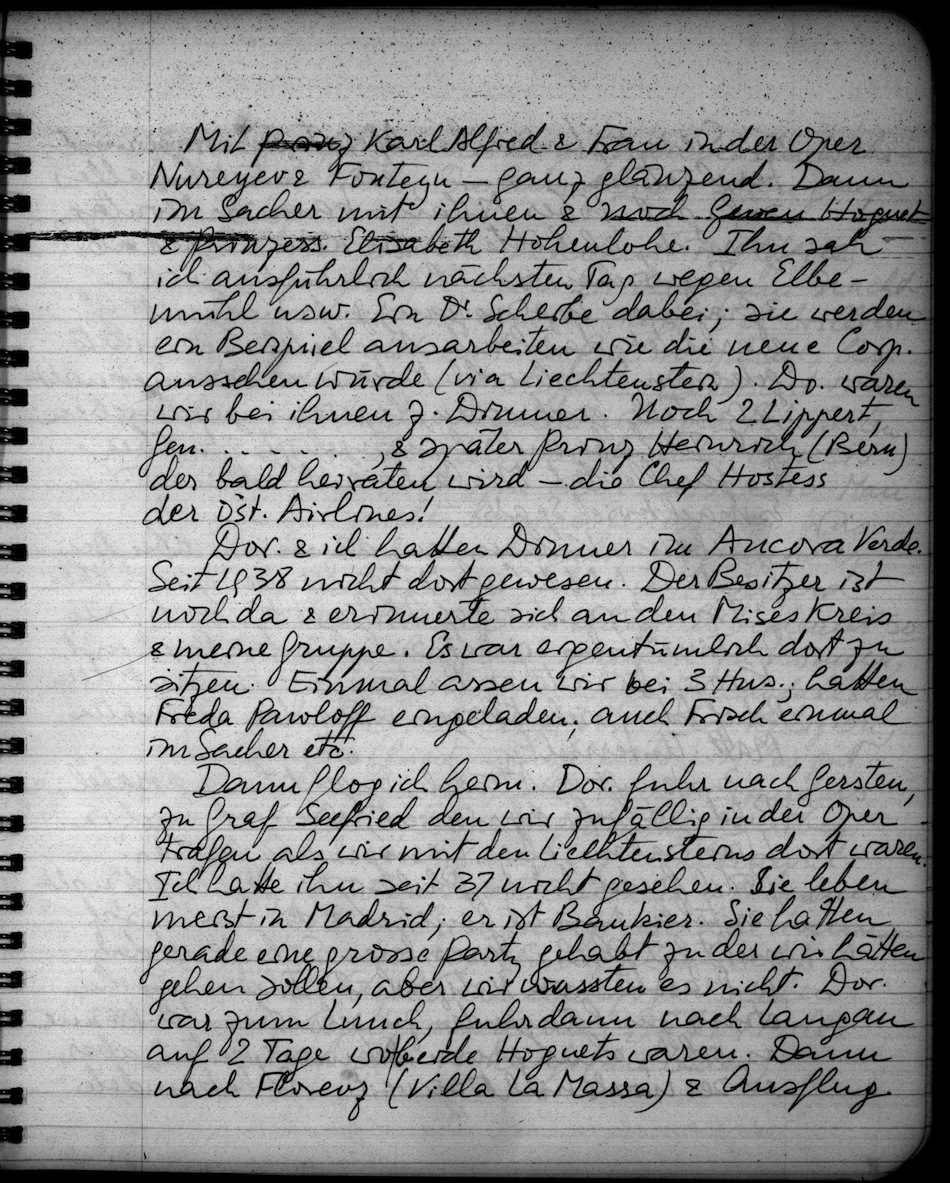 Mit Prinz Karl Alfred & Frau in der Oper
Nureyev & Fonteyn — ganz glänzend. Dann
im Sacher mit ihnen & noch Hoguet
& Prinzess. Elisabeth Hohenlohe. Ihn sah
ich ausführlich nächsten Tag wegen Elbe-
mühl usw. Ein Dr. Scherbe dabei; sie werden
ein Beispiel ausarbeiten wie die neue Corp.
aussehen würde (via Liechtenstein). Do. waren
wir bei ihnen z. Dinner. Noch 2 Lippert,
Gen. . . . . . . . , & später Prinz Heinrich (Bern)
der bald heiraten wird — die Chef Hostess
der Öst. Airlines!
Dor. & ich hatten Dinner im Ancora Verde.
Seit 1938 nicht dort gewesen. Der Besitzer ist
noch da & erinnerte sich an den Mises Kreis
& meine Gruppe. Es war eigentümlich dort zu
sitzen. Einmal assen wir bei 3 Hus.; hatten
Freda Pawloff eingeladen; auch Frisch einmal
im Sacher etc.
Dann flog ich heim. Dor. fuhr nach Gersten,
zu Graf Seefried den wir zufällig in der Oper
trafen als wir mit den Liechtensteins dort waren.
Ich hatte ihn seit 37 nicht gesehen. Sie leben
meist in Madrid; er ist Bankier. Sie hatten
gerade eine grosse Party gehabt zu der wir hätten
gehen sollen, aber wir wussten es nicht. Dor.
war zum Lunch, fuhr dann nach Langau
auf 2 Tage wo beide Hoguets waren. Dann
nach Florenz (Villa La Massa) & Ausflug